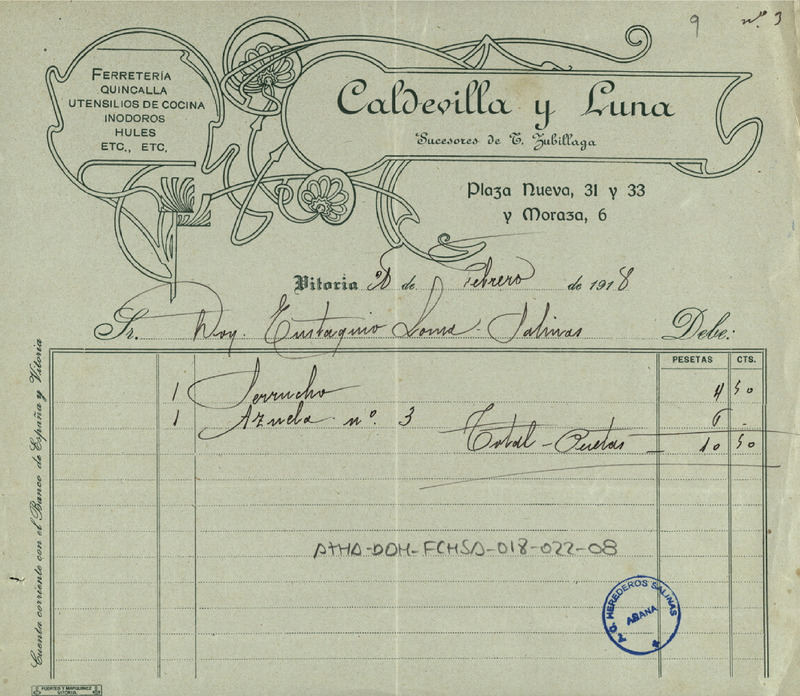 9 nº 3
FERRETERÍA
QUINCALLA
UTENSILIOS DE COCINA
INODOROS
HULES
ETC., ETC.
Caldevilla y Luna
Sucesores de T. Zubillaga
Plaza Nueva, 31 y 33
y Moraza, 6
Vitoria de Febrero de 1918
Sr. Eustaquio Salinas Debe:
PESETAS CTS.
1 Serrucho 4 50
1 Azuela nº. 3 6 -
Total - Pesetas - 10 50
ATHA-DAH-FCHSA-018-022-08
A. G. HEREDEROS SALINAS
ABANA
Cuenta corriente con el Banco de España y Vitoria
FUERTES Y MARQUINEZ
VITORIA